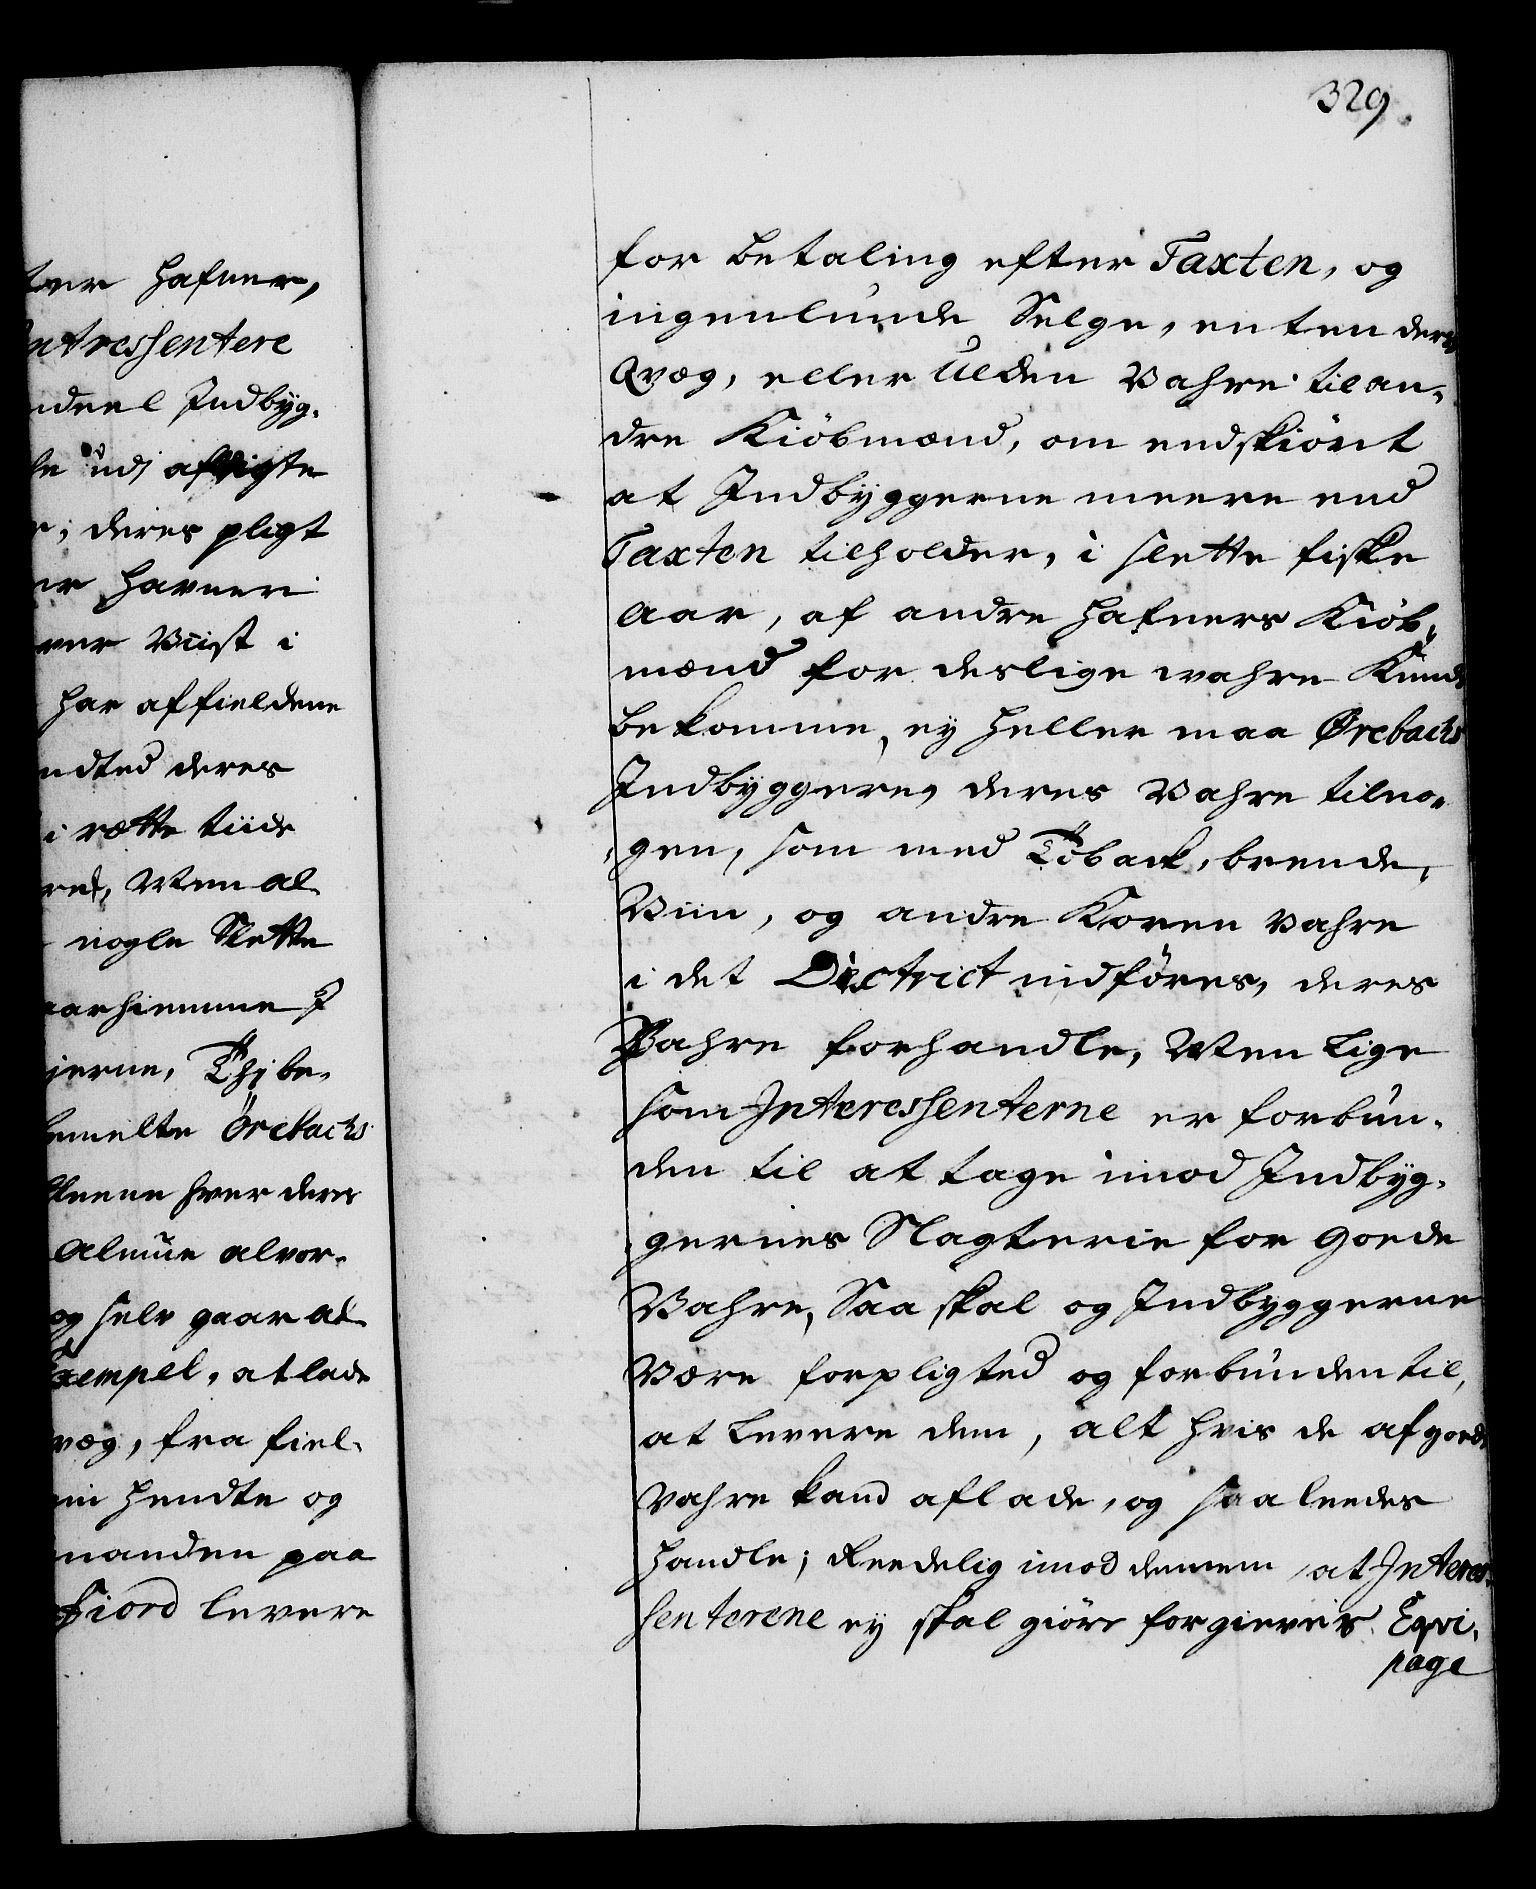 ter Hafner,
ntressentere
ndeel Indbyg.
le udi afvigte
r, deres pligt
er Havner
ver Viist i
har af fieldene
ndted deres
i rætte tiide
red, Men al
nogle Slette
aar hiemme I
ierne, Thi be.
emelte Örebachs
hver deres
Almue alvor.
og selv gaar at
Exempel, at lade
væg, fra fiel.
hendte og
manden paa
Fiord levere
329.
for betaling efter Taxten, og
ingenlunde Selge, enten deres
Qvæg, eller Ulden Vahre til an,
dre Kiöbmænd, om endskiönt
at Indbyggerne meere end
Taxten tilholder, i slette fiske
Aar, af andre Hafners Kiöb,
mænd for deslige wahre Kunde
bekomme, ey heller maa Ørebachs
Indbyggere, deres Vahre til no,
gen, som med Toback, brende,
Viin, og andre Koren vahre
i det District indföres, deres
Vahre forhandle, Men Lige
som Interessenterne er forbun,
den til at tage imod Indbyg,
gernes Slagterie for Goede
Vahre, Saa skal og Indbyggerne
Være forpligted og forbunden til,
at Levere dem, alt hvis de af goede
Vahre kand aflade, og saaleedes
handle; Reedelig imod dennem, at Interes,
senterene ey skal giöre forgieves Eqvi,
page